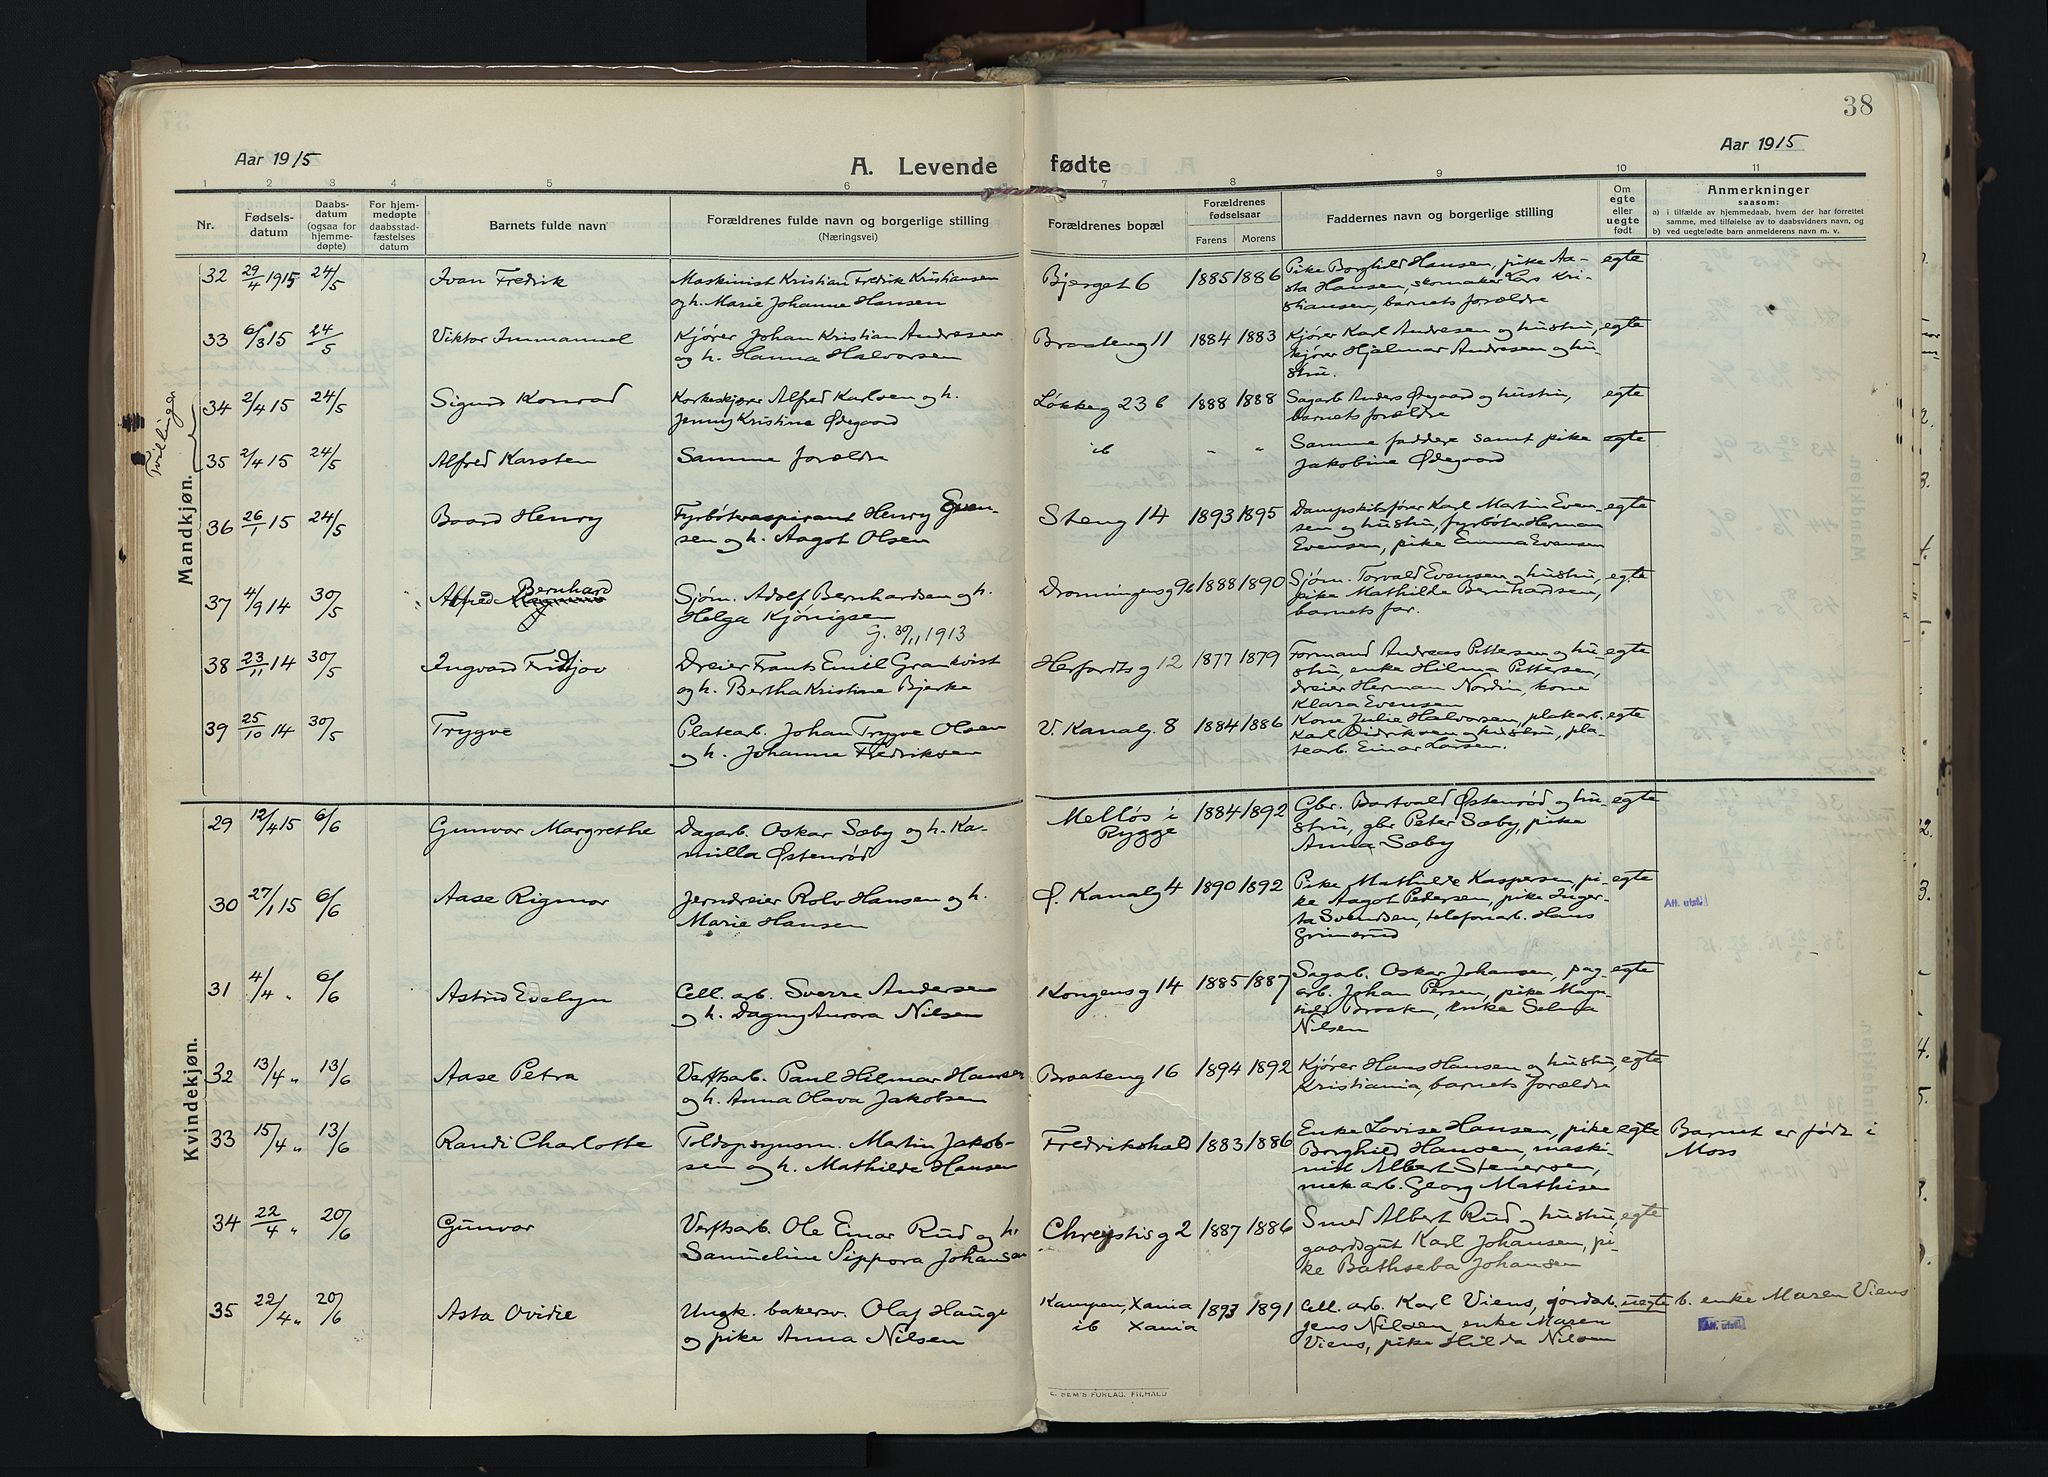 38
Aar 1915
A. Levende fødte
Aar 1915
1 2 3 4 5 6 7 8 9 10 11
Nr.
Fødselsdatum
Daabsdatum (ogsaa for hjemmedøpte)
For hjemmedøpte daabsstadfæstelses datum
Barnets fulde navn
Forældrenes fulde navn og borgerlige stilling
(Næringsvei)
Forældrenes bopæl
Forældrenes fødselsaar
Farens Morens
Faddernes navn og borgerlige stilling
Om egte eller uegte født
Anmerkninger
saasom:
a) i tilfælde av hjemmedaab, hvem der har forrettet
samme, med tilføielse av to daabsvidners navn, og
b) ved uegtefødte barn anmelderens navn m. v.
Mandkjøn.
Tvillinger
32 29/4 1915 24/5 Ivan Fredrik
Maskinist Kristian Fredrik Kristiansen
og h. Marie Johanne Hansen
Bjerget 6 1885 1886
Pike Borghild Hansen, pike Aa-
sta Hansen, skomaker Lars Kri-
stiansen, barnets forældre
egte
33 6/3 15 24/5 Viktor Immanuel
Kjører Johan Kristian Andresen
og h. Hanna Halvorsen
Braateng 11 1884 1883
Kjører Karl Andresen og hustru,
kjører Hjalmar Andresen og hu-
stru.
egte
34 2/4 15 24/5 Sigurd Konrad
Korkeskjærer Alfred Karlsen og h.
Jenny Kristine Ødegaard
Løkkeg 23 b 1888 1888
Sagarb. Anders Ødegaard og hustru,
barnets forældre
egte
35 2/4 15 24/5 Alfred Karsten
Samme forældre
ib " "
Samme faddere samt pike
Jakobine Ødegaard
egte
36 26/1 15 24/5 Baard Henry
Fyrbøteraspirant Henry Even-
sen og h. Aagot Olsen
Steng 14 1893 1895
Dampskibsfører Karl Martin Even-
sen og hustru, fyrbøter Herman
Evensen, pike Emma Evensen
egte
37 4/9 14 30/5 Alfred Bernhard
Sjøm. Adolf Bernhardsen og h.
Helga Kjønigsen
G. 30/11 1913
Dronningensg 96 1888 1890
Sjøm. Torvald Evensen og hustru,
pike Mathilde Bernhardsen,
barnets far.
egte
38 23/11 14 30/5 Ingvard Fridtjov
Dreier Frants Emil Grankvist
og h. Bertha Kristine Bjerke
Herfordtsg 12 1877 1879
Formand Andreas Pettersen og hu-
stru, enke Hilma Pettersen,
dreier Herman Nordin, kone
Klara Evensen
egte
39 25/10 14 30/5 Trygve
Platearb. Johan Trygve Olsen
og h. Johanne Fredriksen
V. Kanalg. 8 1884 1886
Kone Julie Halvorsen, platearb.
Karl Didriksen og hustru, pla-
tearb. Einar Larsen.
egte
Kvindekjøn.
29 12/4 15 6/6 Gunvor Margrethe
Dagarb. Oskar Sæby og h. Ka-
milla Østenrød
Melløs i
Rygge
1884 1892
Gbr. Bartvald Østenrød og hu-
stru, gbr Peter Sæby, pike
Anna Sæby
egte
30 27/1 15 6/6 Aase Rigmor
Jerndreier Rolv Hansen og h.
Marie Hansen
Ø. Kanalg 4 1890 1892
Pike Mathilde Kaspersen, pi-
ke Aagot Pedersen, pike Inger-
ta Svendsen, telefonarb. Hans
Grimsrud
egte
Att. utst.
31 4/4 " 6/6 Astrid Evelyn
Cell. arb. Sverre Andersen
og h. Dagny Aurora Nilsen
Kongensg 14 1885 1887
Sagarb. Oskar Johansen, pag-
arb. Johan Persen, pike Mag-
nild Braaten, enke Selma
Nilsen
egte
32 13/4 " 13/6 Aase Petra
Verftsarb. Paul Hilmar Hansen
og h. Anna Olava Jakobsen
Braateng 16 1894 1892
Kjører Hans Hansen og hustru,
Kristiania, barnets forældre
egte
33 15/4 " 13/6 Randi Charlotte
Toldopsynsm. Martin Jakob-
sen og h. Mathilde Hansen
Fredrikshald 1883 1886
Enke Lovise Hansen, pike
Borghild Hansen, maski-
nist Albert Stenersen,
mek arb. Georg Mathisen
egte
Barnet er født i
Moss
34 22/4 " 20/6 Gunvor
Verftsarb. Ole Einar Rud og h.
Sammeline Sippora Johansen
Chrystisg 2 1887 1886
Smed Albert Rud og hustru,
gaardsgut Karl Johansen, pi-
ke Bathseba Johansen
egte
35 22/4 " 20/6 Asta Ovidie
Ungk. bakersv. Olaf Hauge
og pike Anna Nilsen
Kampen, Xania
ib Xania
1893 1891
Cell. arb. Karl Viens, jordarb.
Jens Nilsen, enke Maren
Viens, pike Hilda Nilsen
uegte
b. enke Maren Viens
Att. utst.
E. SEM'S FORLAG, FR.HALD